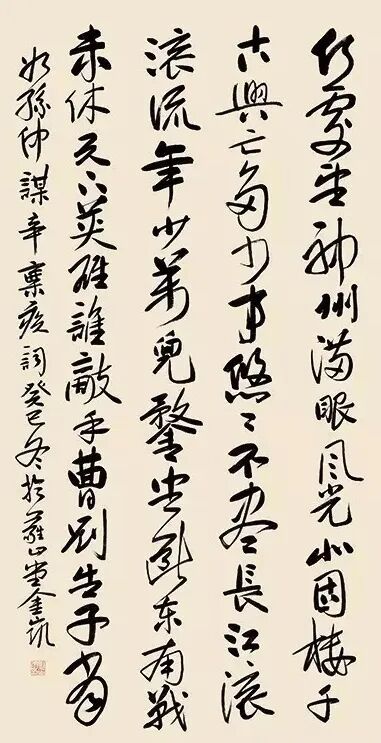 何處望神州滿眼風光北固樓千
古興亡多少事悠々不盡長江滚
滚流年少萬兜鍪坐斷东南戰
未休天下英雄誰敵手曹刘生子當
如孫仲謀辛棄疾詞癸巳冬於山堂金凱